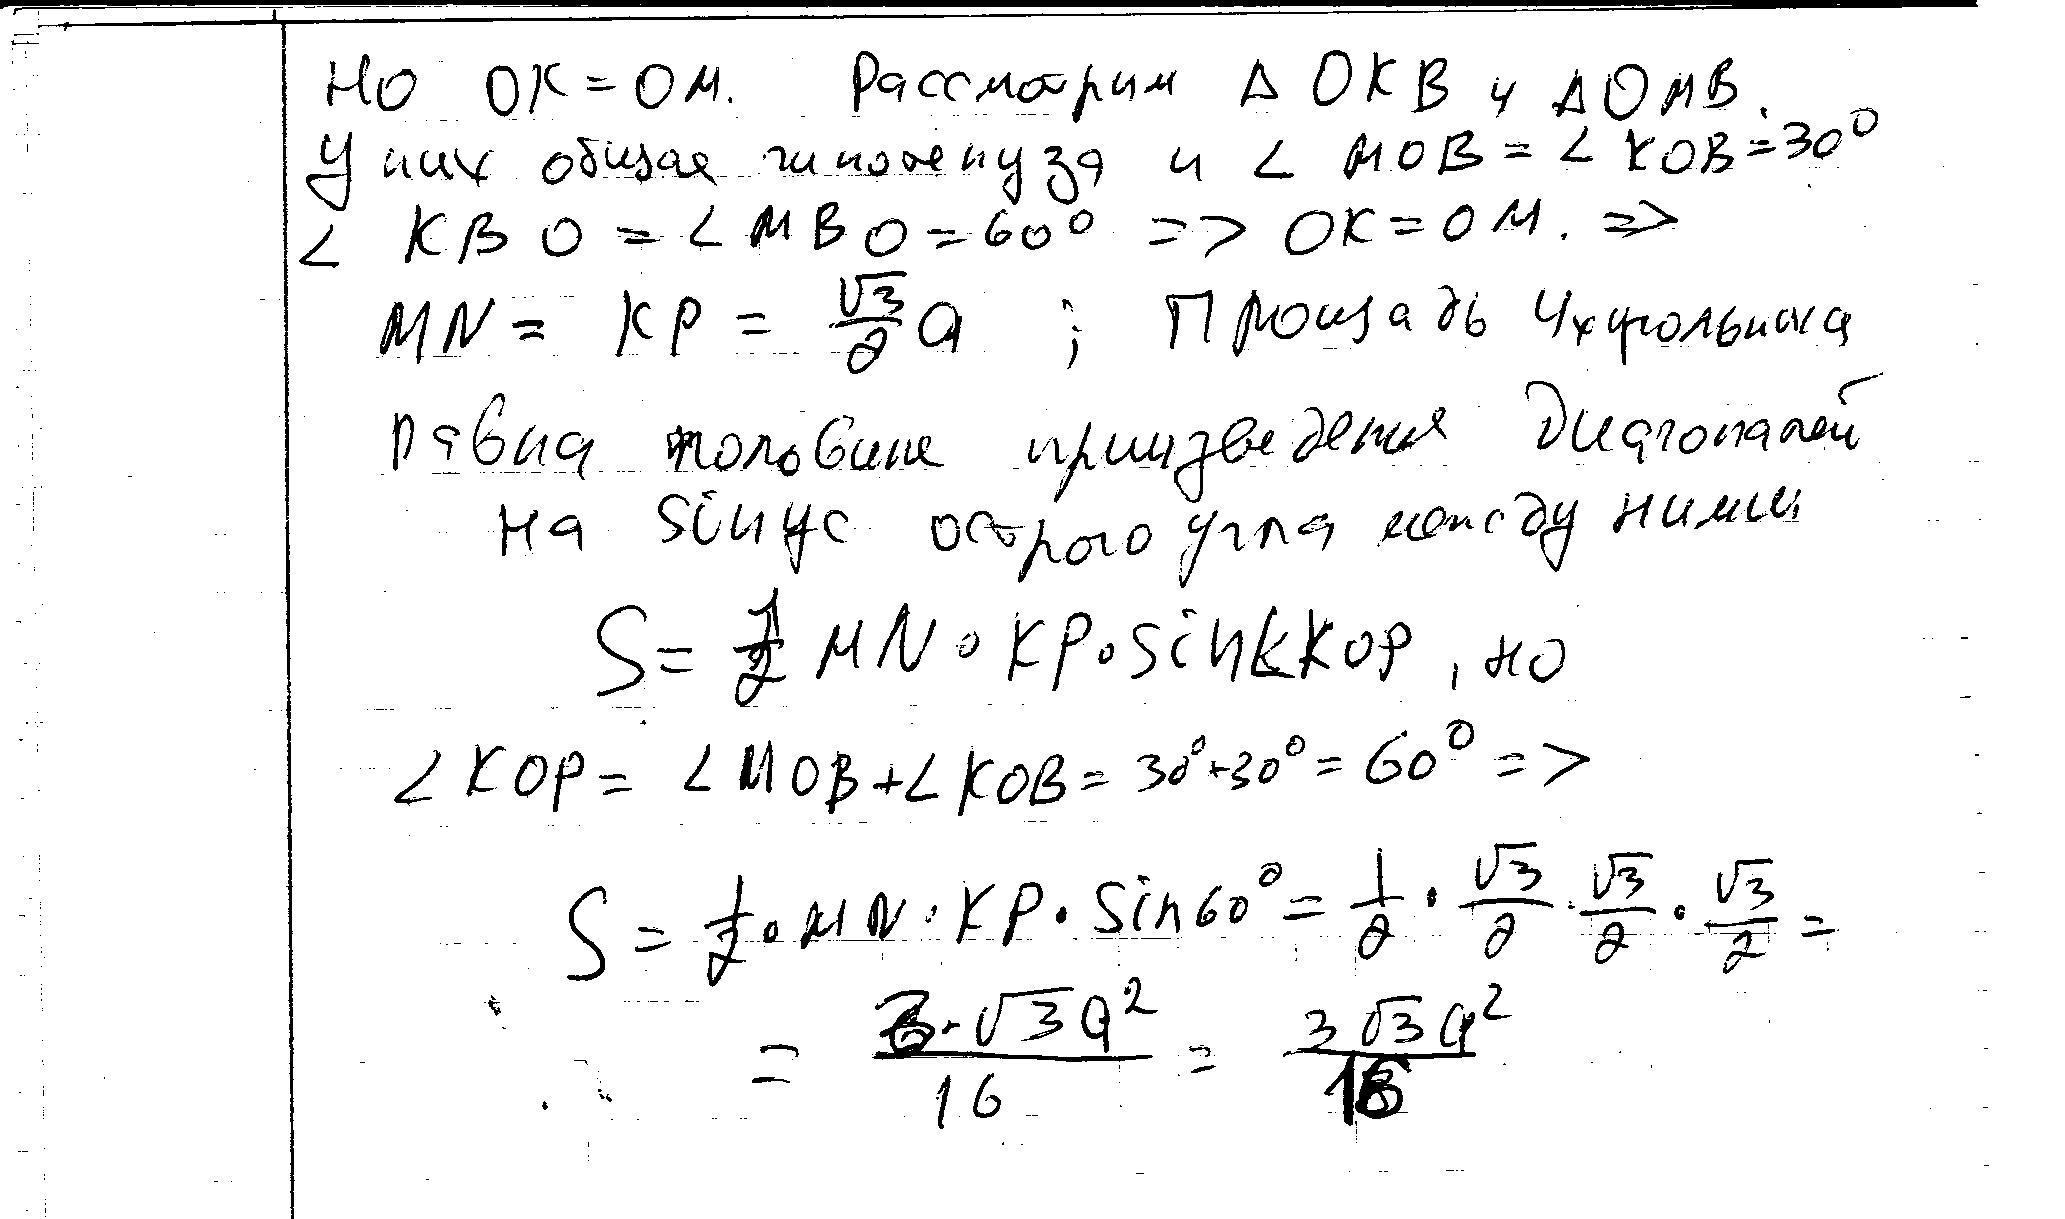 Но OK = OM. Рассмотрим Δ OKB и Δ OMB.
У них общая гипотенуза и ∠ MOB = ∠ KOB = 30°
∠ KBO = ∠ MBO = 60° => OK = OM. =>
MN = KP = √3/2 a ; Площадь 4хугольника
равна половине произведения диагоналей
на sinус острого угла между ними
S = 1/2 MN · KP · sin∠KOP, но
∠KOP = ∠MOB + ∠KOB = 30° + 30° = 60° =>
S = 1/2 · MN · KP · sin60° = 1/2 · √3/2 · √3/2 · √3/2 =
= 3·√3a²/16 = 3√3a²/16